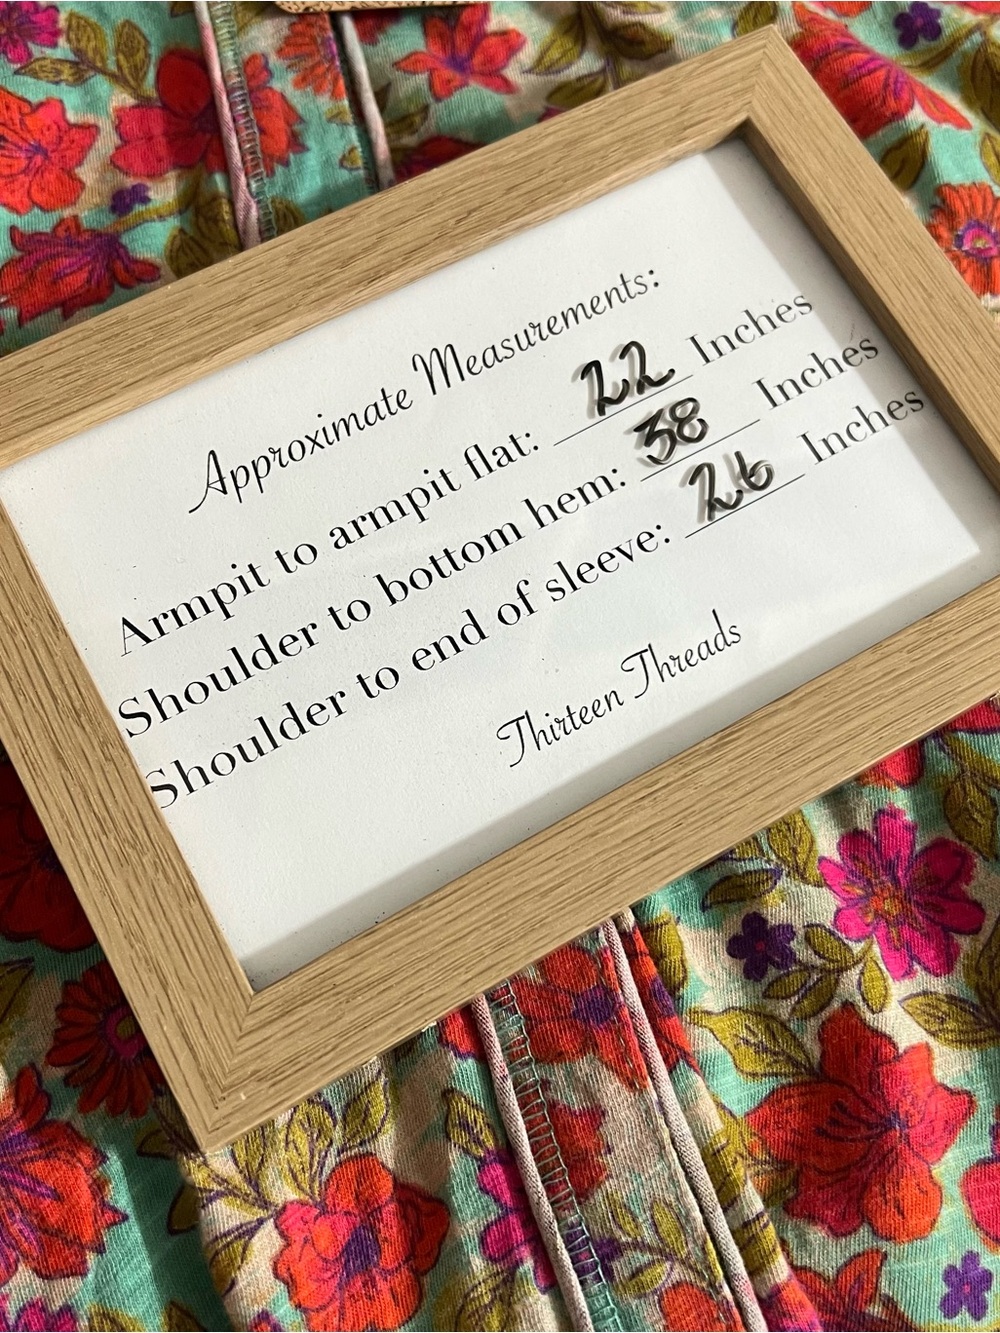 Approximate Measurements:
Armpit to armpit flat: 22 Inches
Shoulder to bottom hem: 38 Inches
Shoulder to end of sleeve: 26 Inches
Thirteen Threads